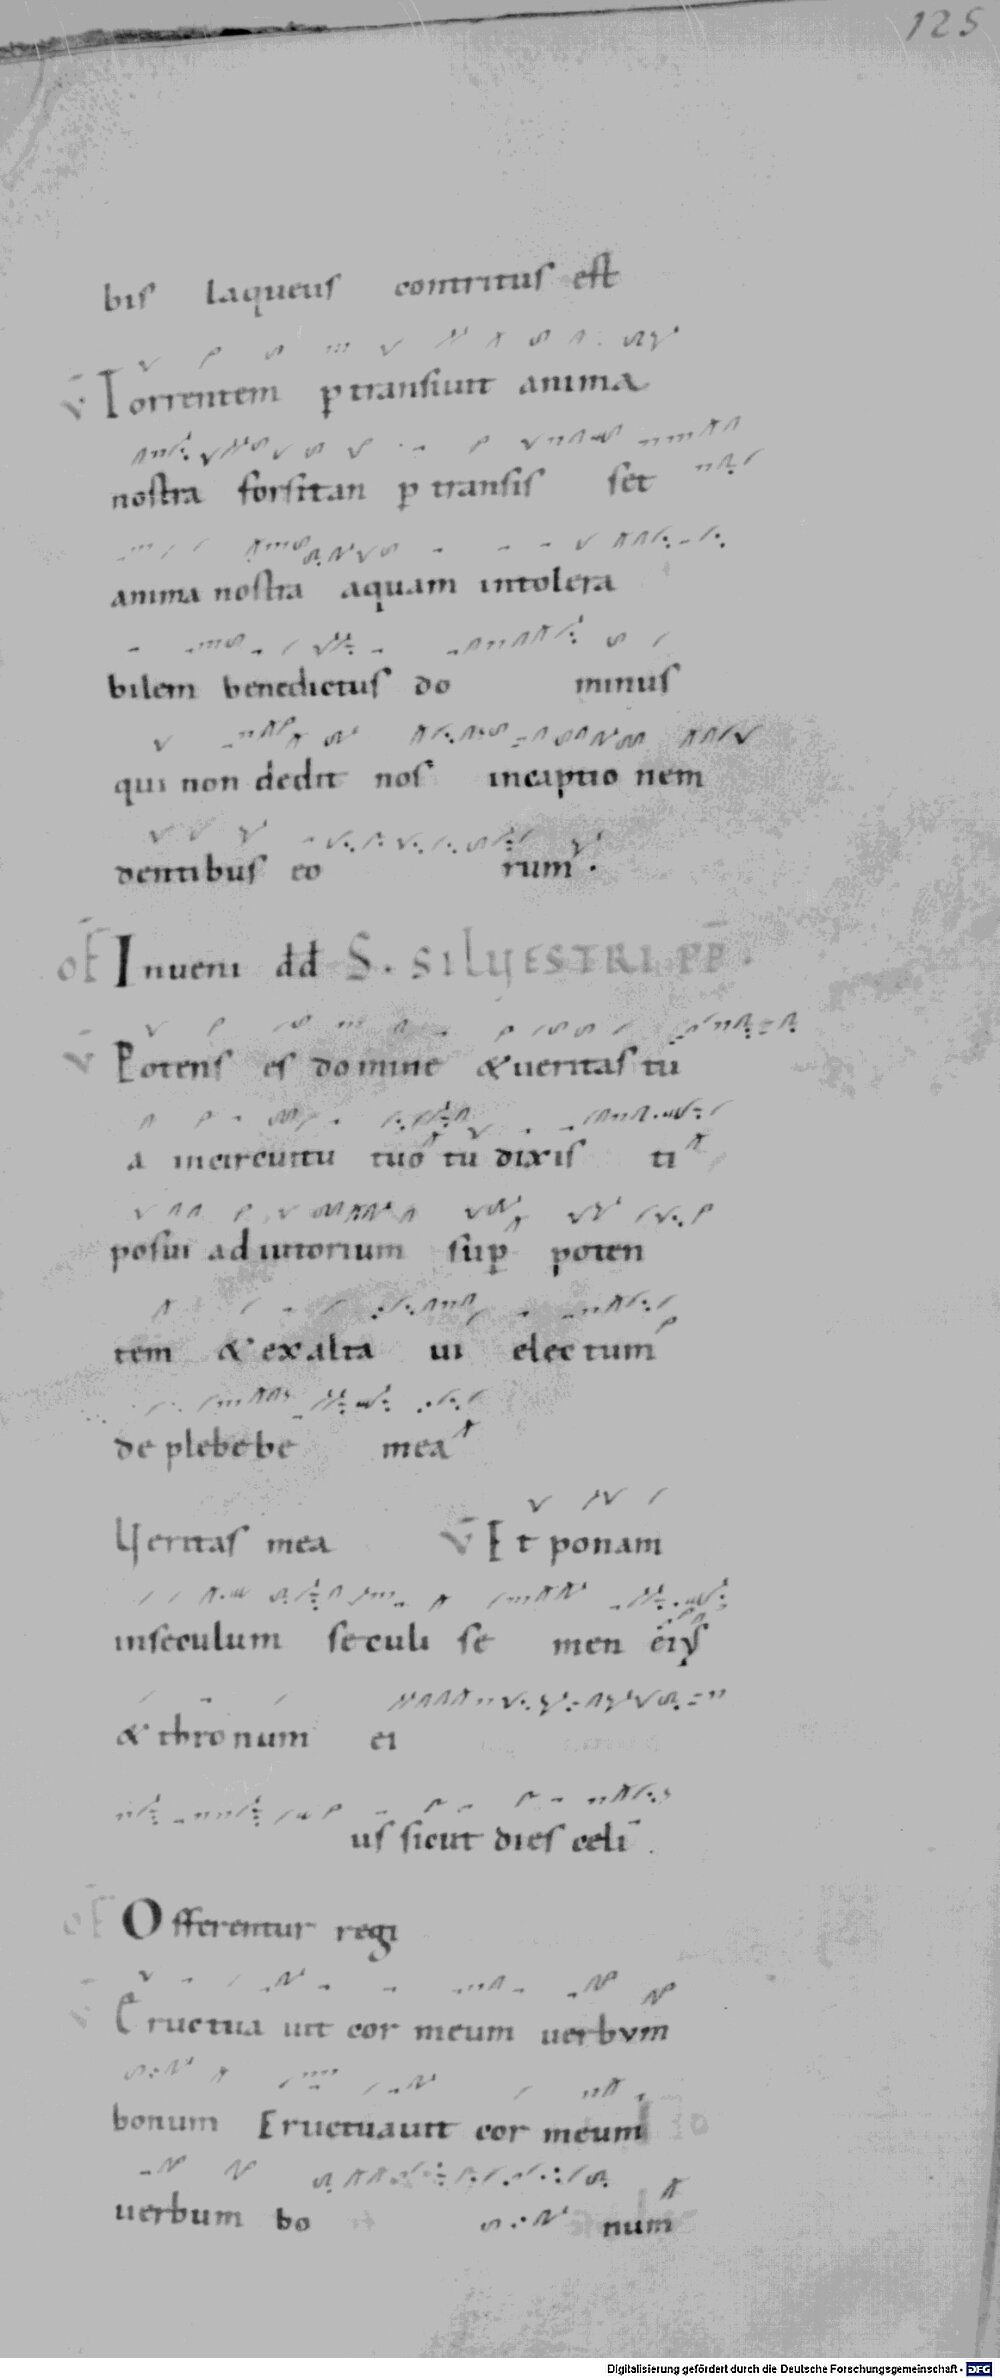 125
bis laqueus contritus est
V̄ Torrentem ptransiuit anima
nostra forsitan p transis set
anima nostra aquam intolera
bilem benedictus do minus
qui non dedit nos incaptio nem
dentibus eo rum.
OF̄ Inueni dd S. SILVESTRI PP̄.
V̄ Potens es domine & ueritas tu
a incircuitu tuo tu dixis ti
posui adiutorium sup poten
tem & exalta ui electum
de plebe be mea
Ueritas mea V̄ Et ponam
inseculum seculi se men eius
& thronum ei
us sicut dies celi.
OF̄ Offerentur regi
V̄ Eructua uit cor meum uerbum
bonum Eructuauit cor meum
uerbum bo num
Digitalisierung gefördert durch die Deutsche Forschungsgemeinschaft - DFG